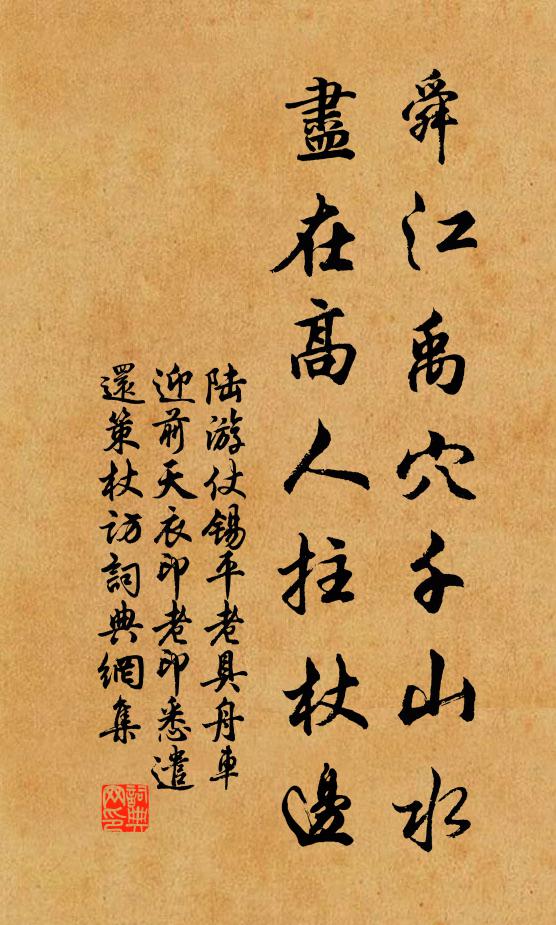 舜江禹穴千山水
盡在高人拄杖邊
陆游仗锡平老具舟車
迎前天衣印老印悉遣
還策杖访詞典網集
詞典網印